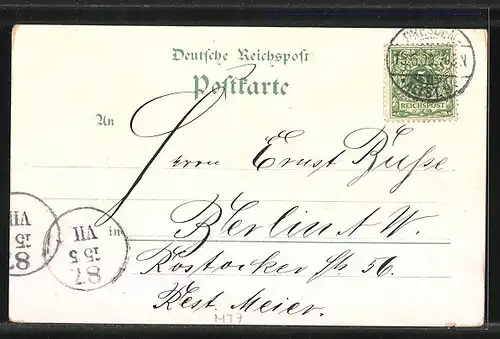 Deutsche Reichspost
Postkarte
DRESDEN
REICHSPOST
An
Herrn Ernst Buße.
in
Berlin N.W.
Rostocker Str. 56.
Rest. Meier.
VII
15 5
87
VII
15 5
87
MT7